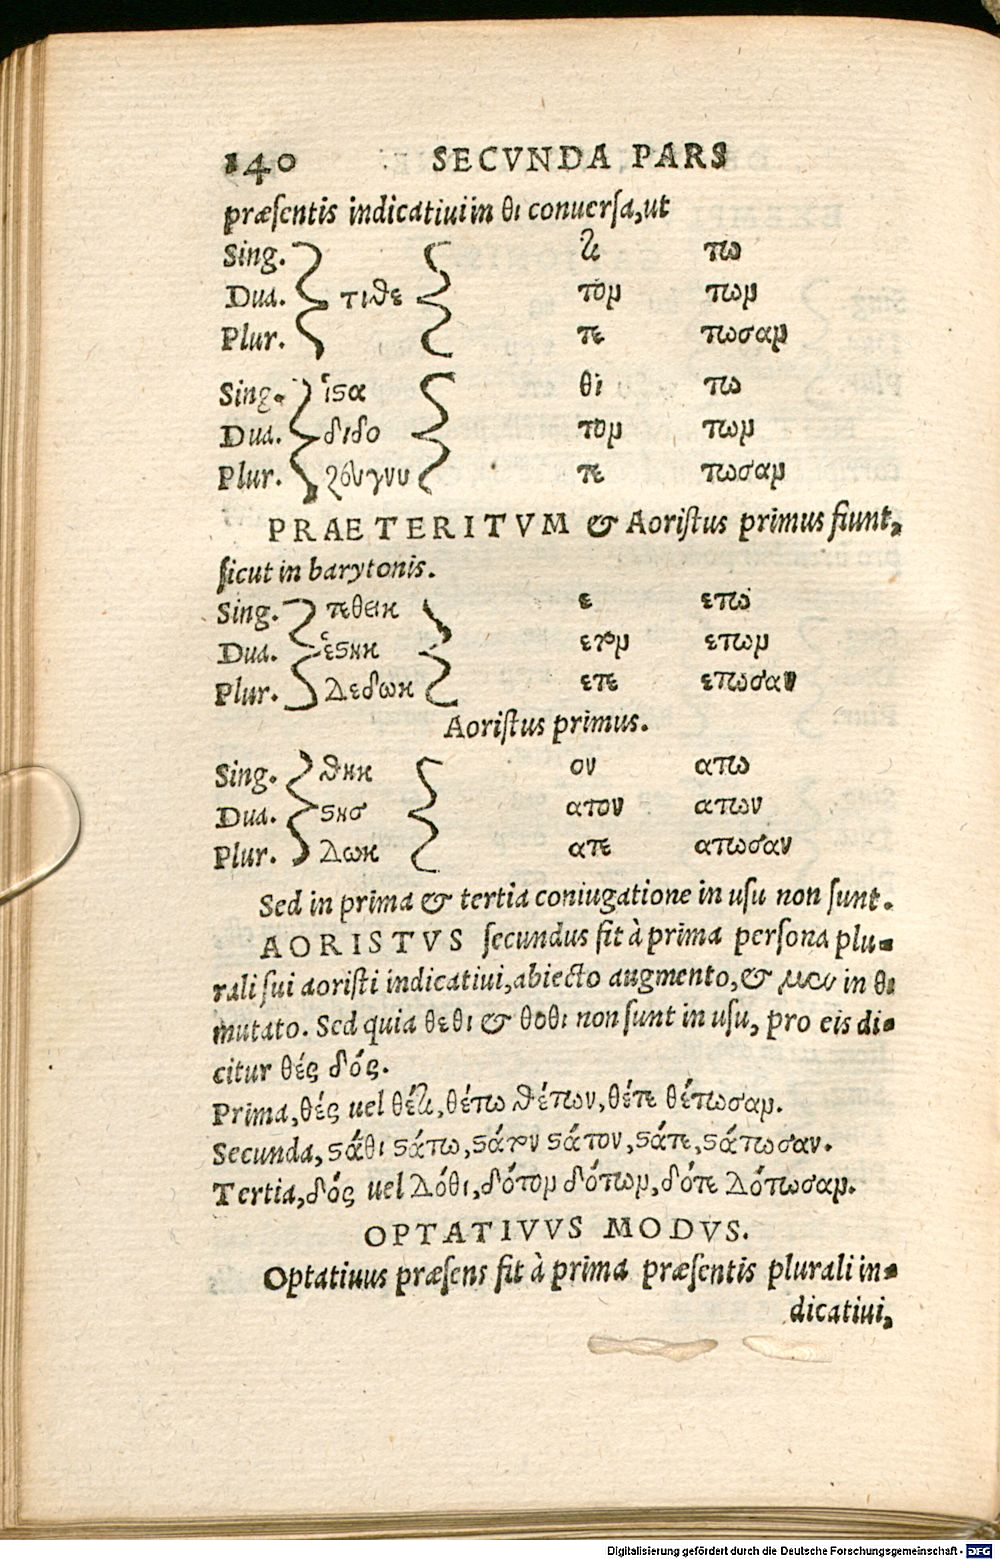 140 SECVNDA PARS
præſentis indicatiui in θι conuerſa, ut
Sing. τι πω
Dua. τιθε τον των
Plur. τε τωσαν
Sing. ἱϛα θι τω
Dua. διδο τον των
Plur. ζευγνυ τε τωσαν
PRAETERITVM & Aoriſtus primus fiunt,
ſicut in barytonis.
Sing. τεθεικ ε ετω
Dua. ἑϛηκ ετον ετων
Plur. δεδωκ ετε ετωσαν
Aoriſtus primus.
Sing. θηκ ον ατω
Dua. ϛησ ατον ατων
Plur. δωκ ατε ατωσαν
Sed in prima & tertia coniugatione in uſu non ſunt.
AORISTVS ſecundus fit à prima perſona plu-
rali ſui aoriſti indicatiui, abiecto augmento, & μεν in θι
mutato. Sed quia θεθι & δοθι non ſunt in uſu, pro eis di-
citur θές δός.
Prima, θές uel θέτι, θέτω θέτων, θέτε θέτωσαν.
Secunda, ϛάθι ϛάτω, ϛάτον ϛάτον, ϛάτε, ϛάτωσαν.
Tertia, δός uel δόθι, δότον δότων, δότε δότωσαν.
OPTATIVVS MODVS.
Optatiuus præſens fit à prima præſentis plurali in-
dicatiui,
Digitalisierung gefördert durch die Deutsche Forschungsgemeinschaft - DFG